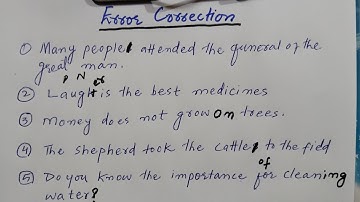 Error Correction
① Many people attended the funeral of the
great man.
P N er
② Laugh is the best medicines
③ Money does not grow on trees.
④ The shepherd took the cattle to the field
of
⑤ Do you know the importance for cleaning
water?